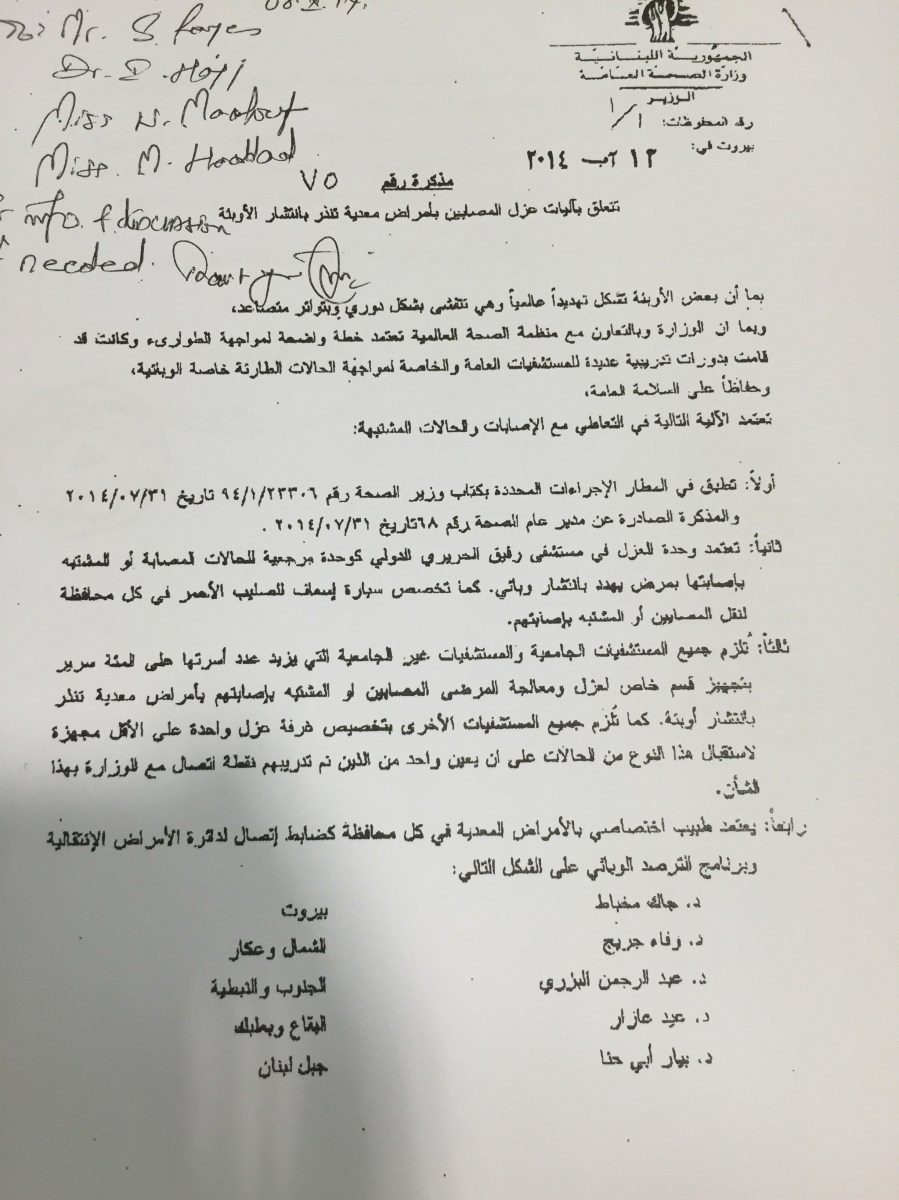 Mr. S.
Dr.
Miss N. Maalouf
Miss. M. Haddad
info. f. discussion
needed.
الجمهورية اللبنانية
وزارة الصحة العامة
الوزير
رقم المحفوظات: ١/١
بيروت في: ١٢ آب ٢٠١٤
مذكرة رقم ٧٥
تتعلق بآليات عزل المصابين بأمراض معدية تنذر بانتشار الأوبئة
بما أن بعض الأوبئة تشكل تهديداً عالمياً وهي تتفشى بشكل دوري وبتواتر متصاعد،
وبما ان الوزارة وبالتعاون مع منظمة الصحة العالمية تعتمد خطة واضحة لمواجهة الطوارىء وكانت قد
قامت بدورات تدريبية عديدة للمستشفيات العامة والخاصة لمواجهة الحالات الطارئة خاصة الوبائية،
وحفاظاً على السلامة العامة،
تعتمد الآلية التالية في التعاطي مع الإصابات والحالات المشتبهة:
أولاً: تطبق في المطار الإجراءات المحددة بكتاب وزير الصحة رقم ٩٤/١/٢٣٣٠٦ تاريخ ٢٠١٤/٠٧/٣١
والمذكرة الصادرة عن مدير عام الصحة رقم ٦٨ تاريخ ٢٠١٤/٠٧/٣١ .
ثانياً: تعتمد وحدة العزل في مستشفى رفيق الحريري الدولي كوحدة مرجعية للحالات المصابة أو المشتبه
بإصابتها بمرض يهدد بانتشار وبائي. كما تخصص سيارة إسعاف للصليب الأحمر في كل محافظة
لنقل المصابين أو المشتبه بإصابتهم.
ثالثاً: تُلزم جميع المستشفيات الجامعية والمستشفيات غير الجامعية التي يزيد عدد أسرتها على المئة سرير
بتجهيز قسم خاص لعزل ومعالجة المرضى المصابين او المشتبه بإصابتهم بأمراض معدية تنذر
بانتشار أوبئة. كما تُلزم جميع المستشفيات الأخرى بتخصيص غرفة عزل واحدة على الأقل مجهزة
لاستقبال هذا النوع من الحالات على ان يعين واحد من الذين تم تدريبهم نقطة اتصال مع الوزارة بهذا
الشأن.
رابعاً: يعتمد طبيب اختصاصي بالأمراض المعدية في كل محافظة كضابط إتصال لدائرة الأمراض الإنتقالية
وبرنامج الترصد الوبائي على الشكل التالي:
د. جاك مخباط بيروت
د. وفاء جريج الشمال وعكار
د. عبد الرحمن البزري الجنوب والنبطية
د. عيد عازار البقاع وبعلبك
د. بيار أبي حنا جبل لبنان